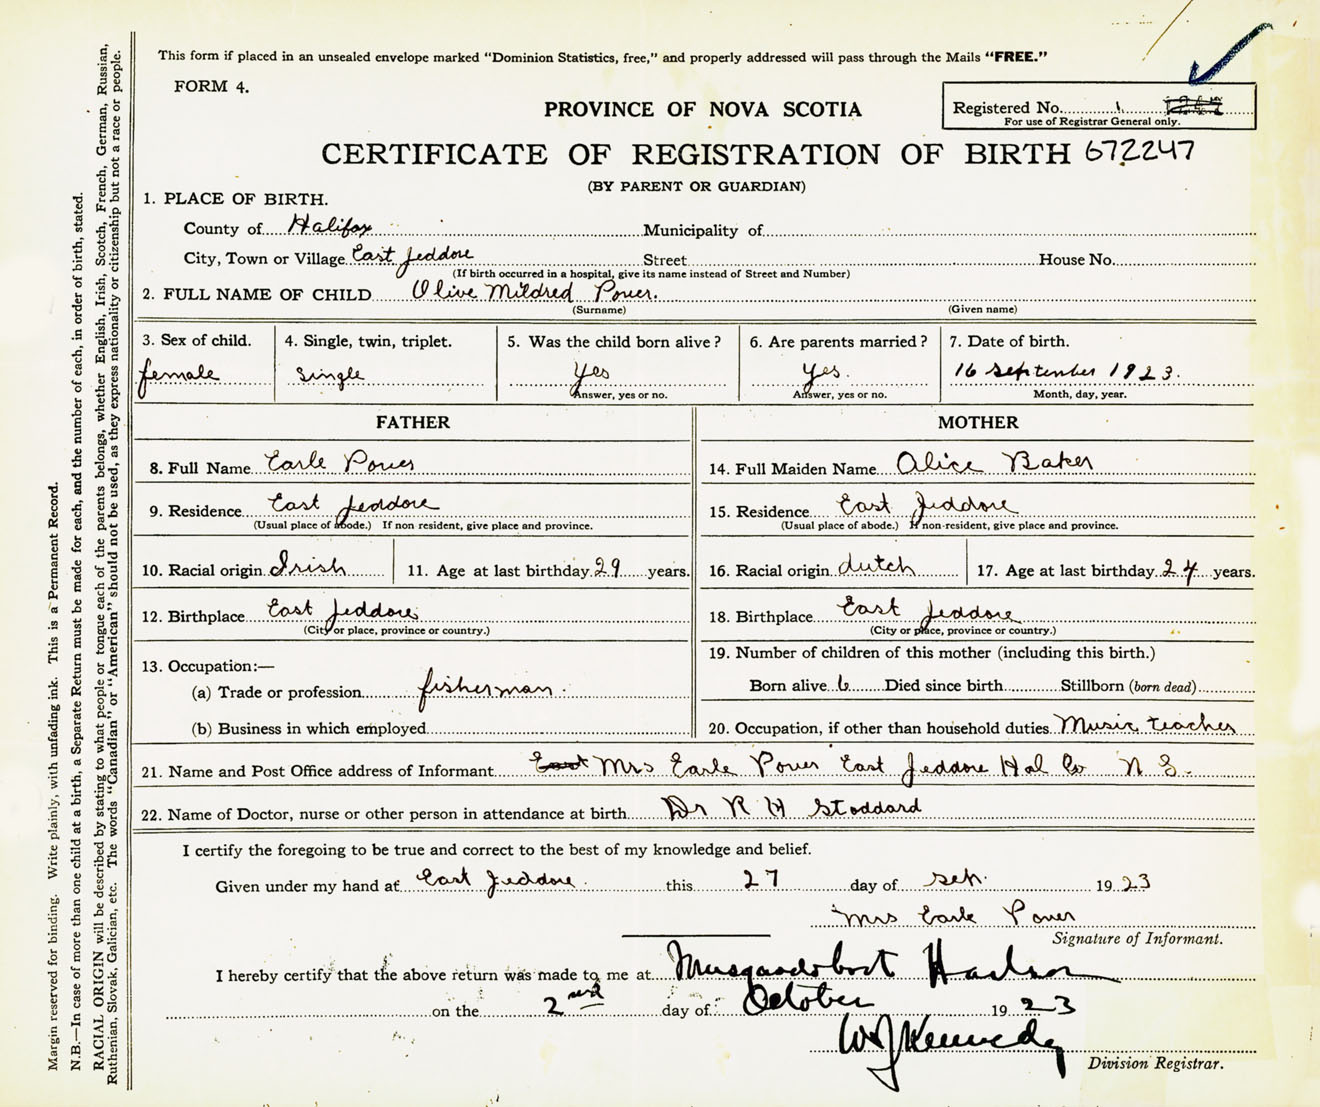 This form if placed in an unsealed envelope marked “Dominion Statistics, free,” and properly addressed will pass through the Mails “FREE.”
FORM 4.
PROVINCE OF NOVA SCOTIA
Registered No.
For use of Registrar General only.
CERTIFICATE OF REGISTRATION OF BIRTH 672247
(BY PARENT OR GUARDIAN)
1. PLACE OF BIRTH.
County of Halifax Municipality of
City, Town or Village East Jeddore Street House No.
(If birth occurred in a hospital, give its name instead of Street and Number)
2. FULL NAME OF CHILD Olive Mildred Power.
(Surname) (Given name)
3. Sex of child. 4. Single, twin, triplet. 5. Was the child born alive? 6. Are parents married? 7. Date of birth.
female single Yes Yes. 16 September 1923.
Answer, yes or no. Answer, yes or no. Month, day, year.
FATHER MOTHER
8. Full Name Earle Power 14. Full Maiden Name Alice Baker
9. Residence East Jeddore 15. Residence East Jeddore
(Usual place of abode.) If non-resident, give place and province. (Usual place of abode.) If non-resident, give place and province.
10. Racial origin Irish 11. Age at last birthday 29 years. 16. Racial origin dutch 17. Age at last birthday 24 years.
12. Birthplace East Jeddore 18. Birthplace East Jeddore
(City or place, province or country.) (City or place, province or country.)
13. Occupation:— 19. Number of children of this mother (including this birth.)
(a) Trade or profession fisherman. Born alive 6 Died since birth Stillborn (born dead)
(b) Business in which employed 20. Occupation, if other than household duties Music teacher
21. Name and Post Office address of Informant Mrs Earle Power East Jeddore Hal Co N S.
22. Name of Doctor, nurse or other person in attendance at birth Dr R H Stoddard
I certify the foregoing to be true and correct to the best of my knowledge and belief.
Given under my hand at East Jeddore this 27 day of Sep. 1923
Mrs Earle Power
Signature of Informant.
I hereby certify that the above return was made to me at Musquodoboit Harbor
on the 2nd day of October 1923
W J Kennedy
Division Registrar.
Margin reserved for binding. Write plainly, with unfading ink. This is a Permanent Record.
N.B.—In case of more than one child at a birth, a Separate Return must be made for each, and the number of each, in order of birth, stated.
RACIAL ORIGIN will be described by stating to what people or tongue each of the parents belongs, whether English, Irish, Scotch, French, German, Russian,
Ruthenian, Slovak, Galician, etc. The words “Canadian” or “American” should not be used, as they express nationality or citizenship but not a race or people.